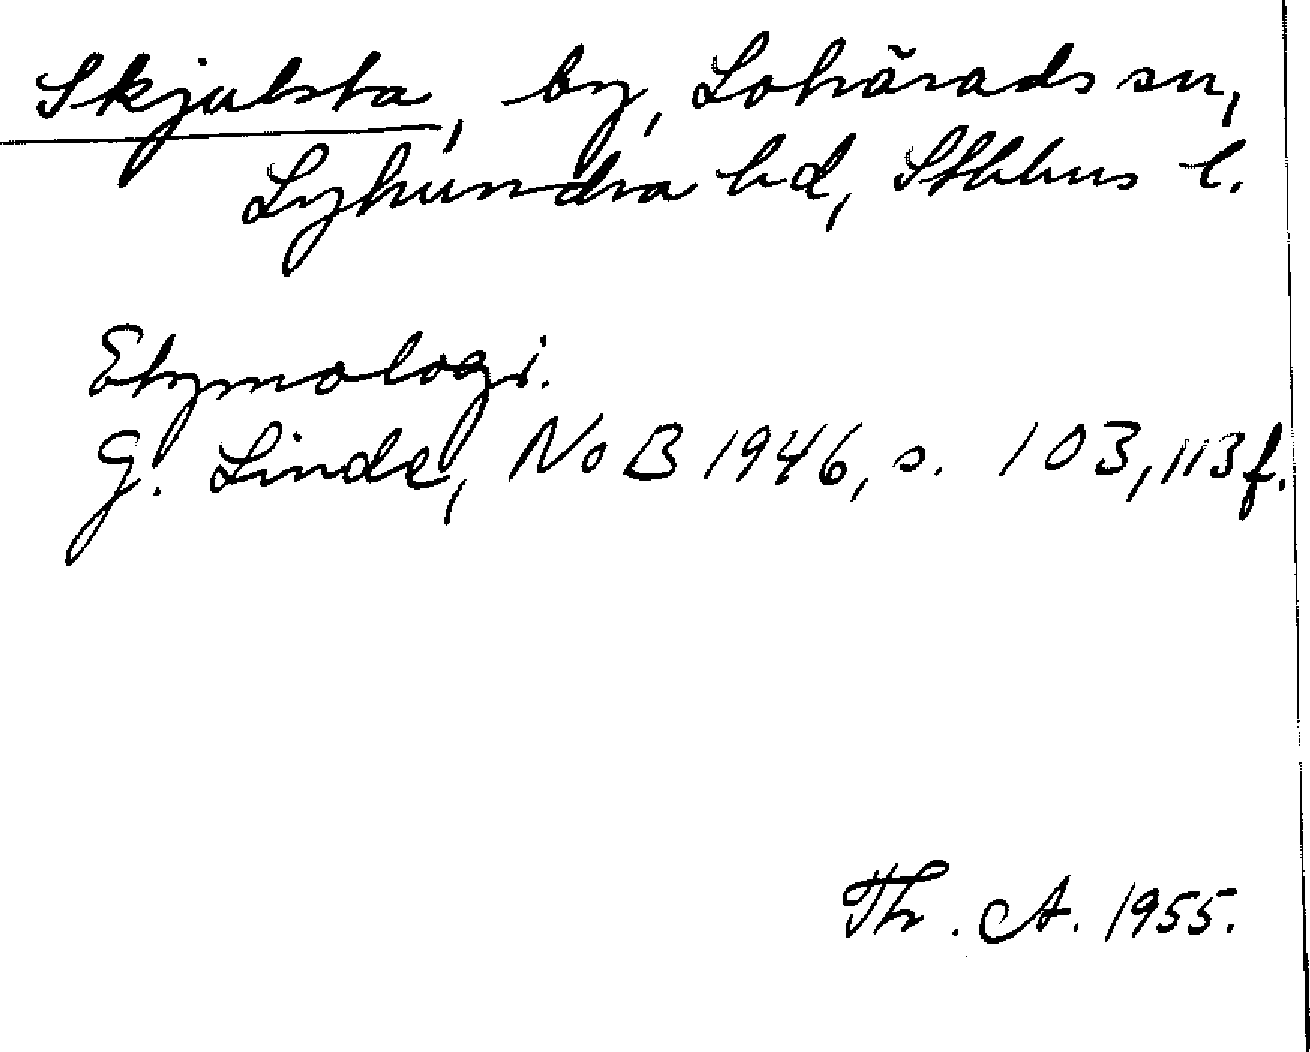 Skjulsta, by, Lohärads sn,
Lyhundra hd, Sthlms l.
Etymologi.
G. Linde, NoB 1946, s. 103, 113 f.
Th. A. 1955.